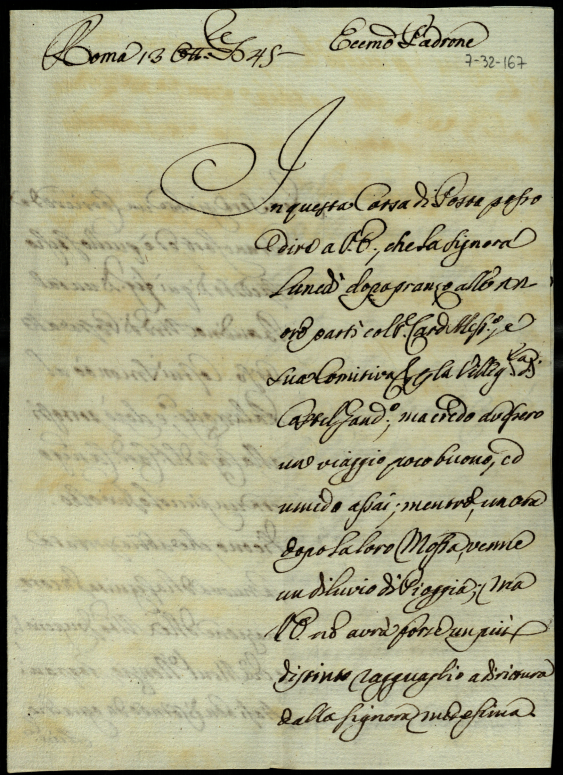 Roma 13 Ott.re 745
Eccmo Padrone
7-32-167
In questa Corsa di Posta posso
dire a V.E., che la Signora
Lunedì dopo pranzo alle 21
ore partì coll'E. Card. Mess.o, e
sua Comitiva per la Villeg.ra di
Castel Gand.o; ma credo avessero
un viaggio poco buono, ed
umido assai; mentre, un ora
dopo la loro Mossa, venne
un diluvio di Pioggia; ma
V.E. ne avrà forse un più
distinto ragguaglio a dirittura
dalla Signora medesima.